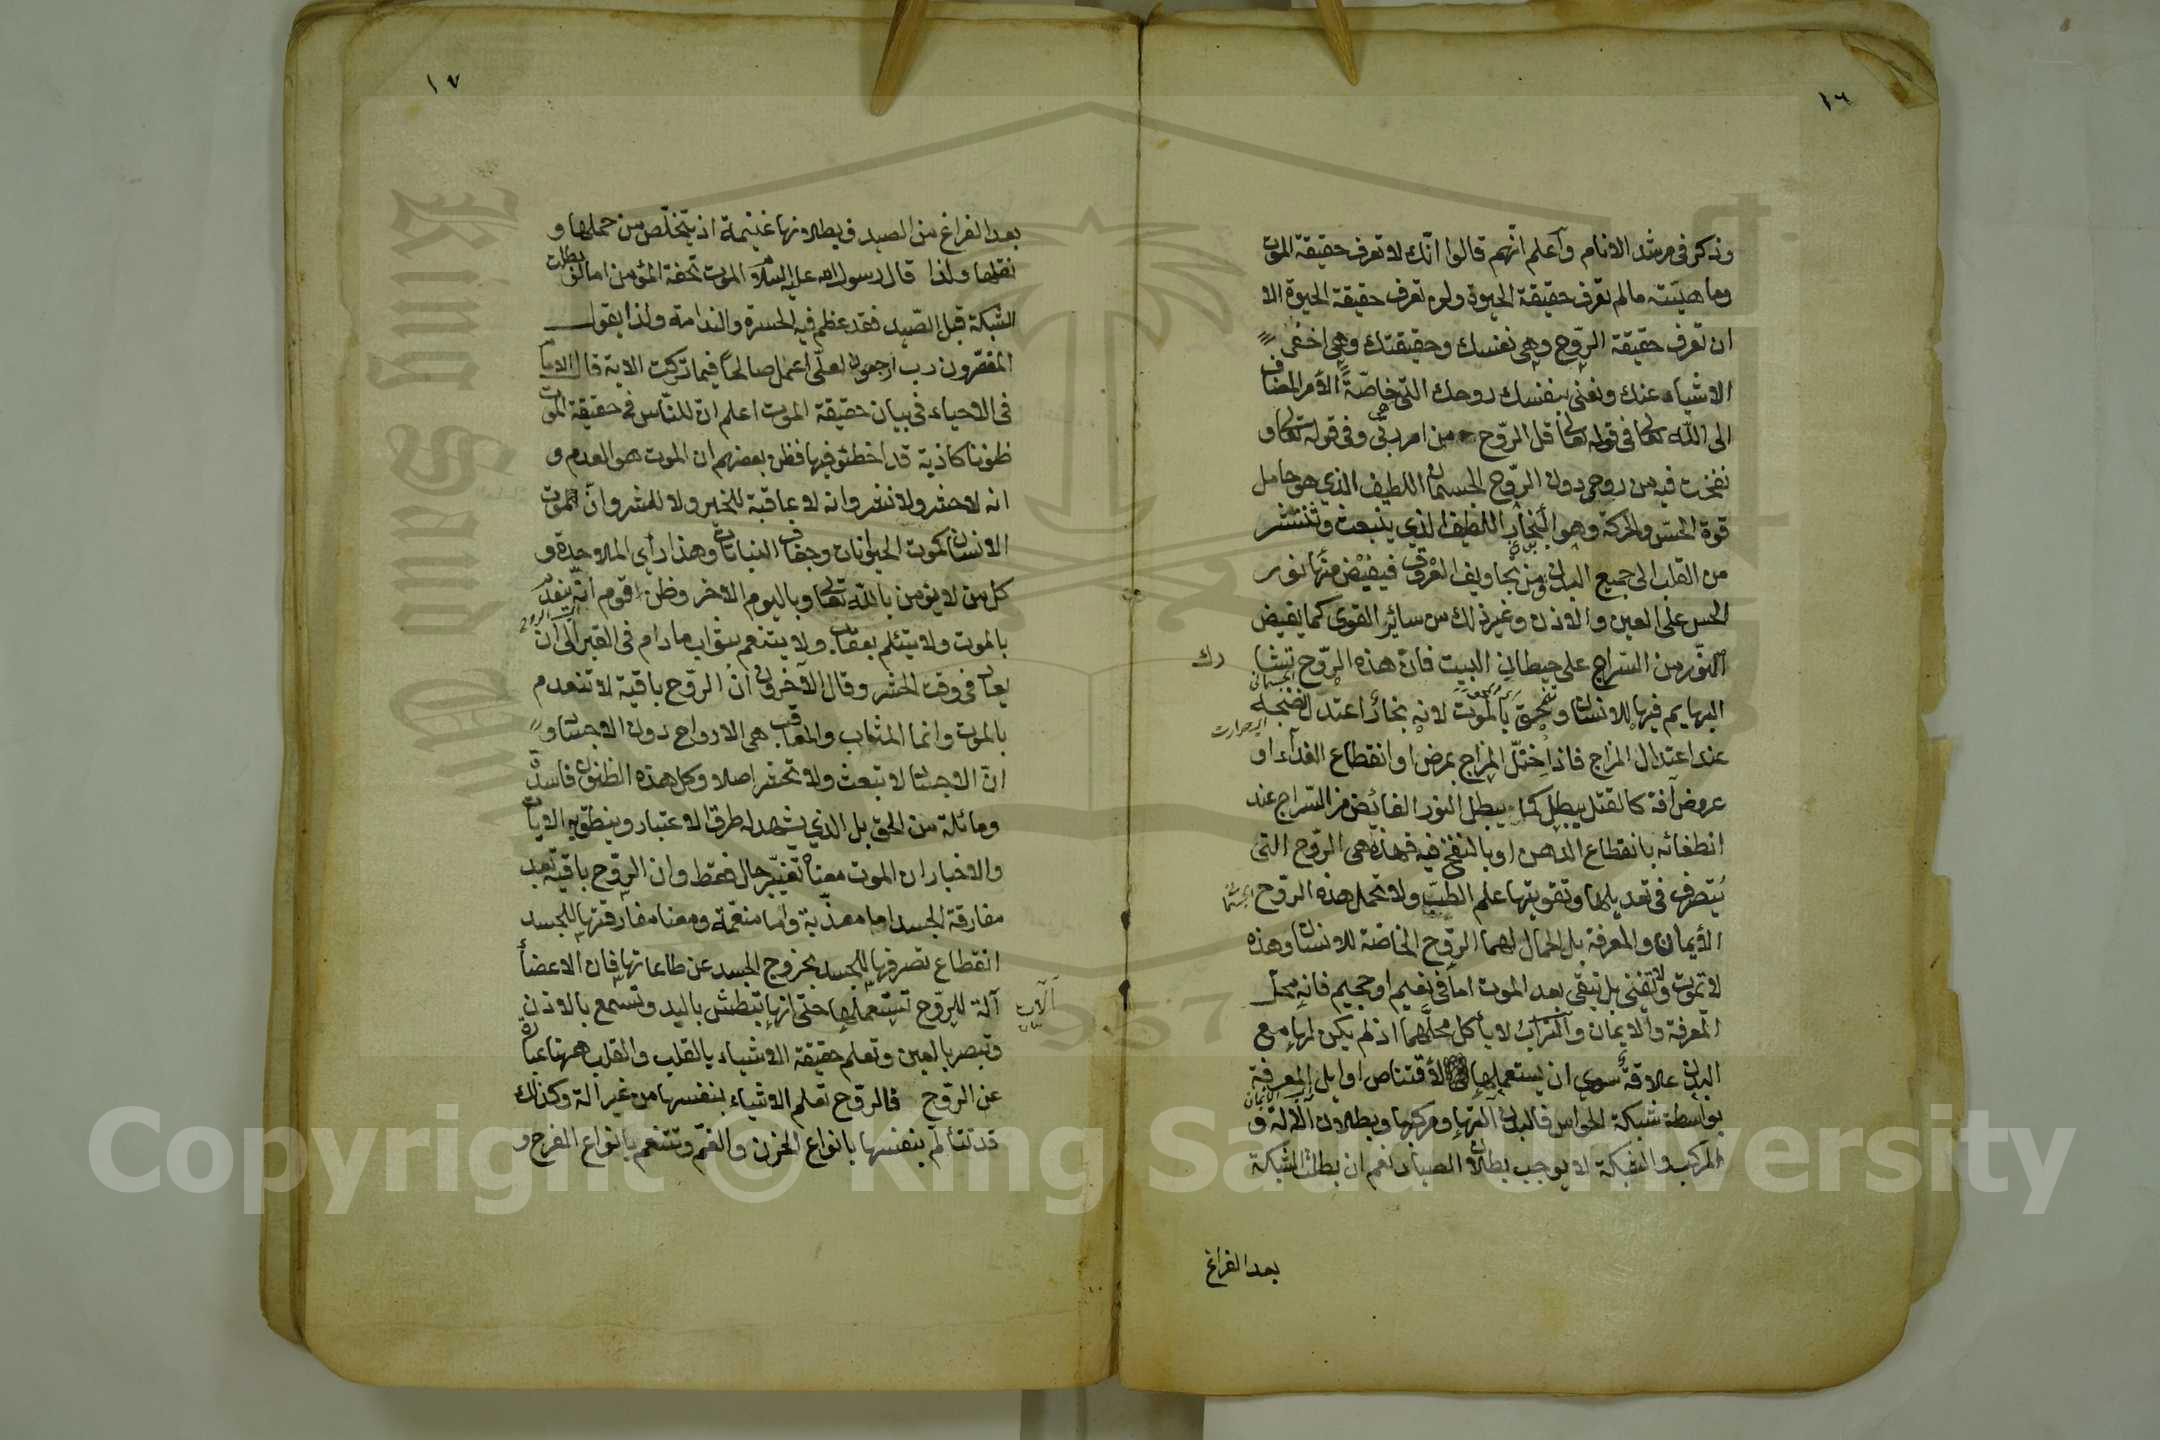 ١٦
وذكر في مرشد الانام وأعلم انّهم قالوا انّك لا تعرف حقيقة الموت
وما هيّته مالم تعرف حقيقة الحيوة ولم تعرف حقيقة الحيوة الا
ان تعرف حقيقة الروح وهي نفسك وحقيقتك وهي اخفى
الاشياء عنك ونعني بنفسك روحك التي خاصّة الأمر المضاف
الى الله تعالى في قوله تعالى قل الروح من امر ربّي وفي قوله تعالى و
نفخت فيه من روحي دون الروح الجسماني اللطيف الذي هو حامل
قوة الحسّ والحركة وهو البخار اللطيف الذي ينبعث وتنتشر
من القلب الى جميع البدن من تجاويف العروق فيفيض منها نور
الحس على العين والاذن وغير ذلك من سائر القوى كما يفيض
النّور من السّراج على حيطان البيت فان هذه الروح تتشا
رك
البهايم فيها للانسان وتنمحق بالموت لانه بخار اعتدل لنضجه
الجسماني
عند اعتدال المزاج فاذا اختلّ المزاج بمرض او انقطاع الغذآء او
عروض آفة كالقتل يبطل كما يبطل النور الفائض من السّراج عند
انطفائه بانقطاع الدهن او بالنفخ فيه فهذه هي الروح التي
يُتصرف في تعديلها وتقويتها علم الطبّ ولا تحمل هذه الروح
الأيمان والمعرفة بل الحمال لهما الروح الخاصّة للانسان وهذه
لا تموت ولا تفنى بل تبقى بعد الموت اما في نعيم او جحيم فانه محل
المعرفة والايمان والتراب لا يأكل محلّهما اذ لم يكن لها مع
البدن علاقة سوى ان يستعملها لأقتناص اوايل المعرفة
الايمان
بواسطة شبكة الحواس فالبدن آلتها ومركبها وبطلان الآلة و
المركب والشبكة لا يوجب بطلان الصياد نعم ان بطلت الشبكة
بعد الفراغ
١٧
بعد الفراغ من الصيد فبطلانها غنيمة اذ يتخلّص من حملها و
نقلها ولذا قال رسول الله عليه السلام الموت تحفة المؤمن اما لو بطلت
الشبكة قبل الصّيد فقد عظم فيه الحسرة والندامة ولذا يقول
المقصّرون رب ارجعون لعلّي اعمل صالحًا فيما تركت الاية قال الامام
في الاحياء في بيان حقيقة الموت اعلم ان للنّاس في حقيقة الموت
ظنونا كاذبة قد اخطئو فيها فظن بعضهم ان الموت هو العدم و
انه لا حشر ولا نشر وانه لا عاقبة للخير ولا للشر وان موت
الانسان كموت الحيوانات وجفاف النباتات وهذا رأي الملاحدة و
كل من لا يؤمن بالله تعالى وباليوم الاخر وظن اقوم انّه ينعدم
بالموت ولا يتئلم بعقاب ولا يتنعم بثواب مادام في القبر الى ان
الروح
يعاد في وقت الحشر وقال الآخرون ان الروح باقية لا تنعدم
بالموت وانما المثاب والمعاقب هي الارواح دون الاجساد و
انّ الاجساد لا تبعث ولا تحشر اصلا وكل هذه الظنون فاسدة
ومائلة من الحق بل الذي يشهد له طرق الاعتبار وينطق به الايات
والاخبار ان الموت معناه تغيّر حال فقط وان الروح باقية بعد
مفارقة الجسد اما معذّبة واما منعّمة ومعنا مفارقتها للجسد
انقطاع تصرفها للجسد بخروج الجسد عن طاعاتها فان الاعضأ
آلة للروح تستعملها حتى انها تبطش باليد وتسمع بالاذن
آلات
وتبصر بالعين وتعلم حقيقة الاشياء بالقلب والقلب ههنا عبارة
عن الروح فالروح تعلم الاشياء بنفسها من غير آلة وكذلك
قد تتألم بنفسها بانواع الحزن والغمّ وتتنعم بانواع الفرح و
King Saud University
1957
Copyright © King Saud University